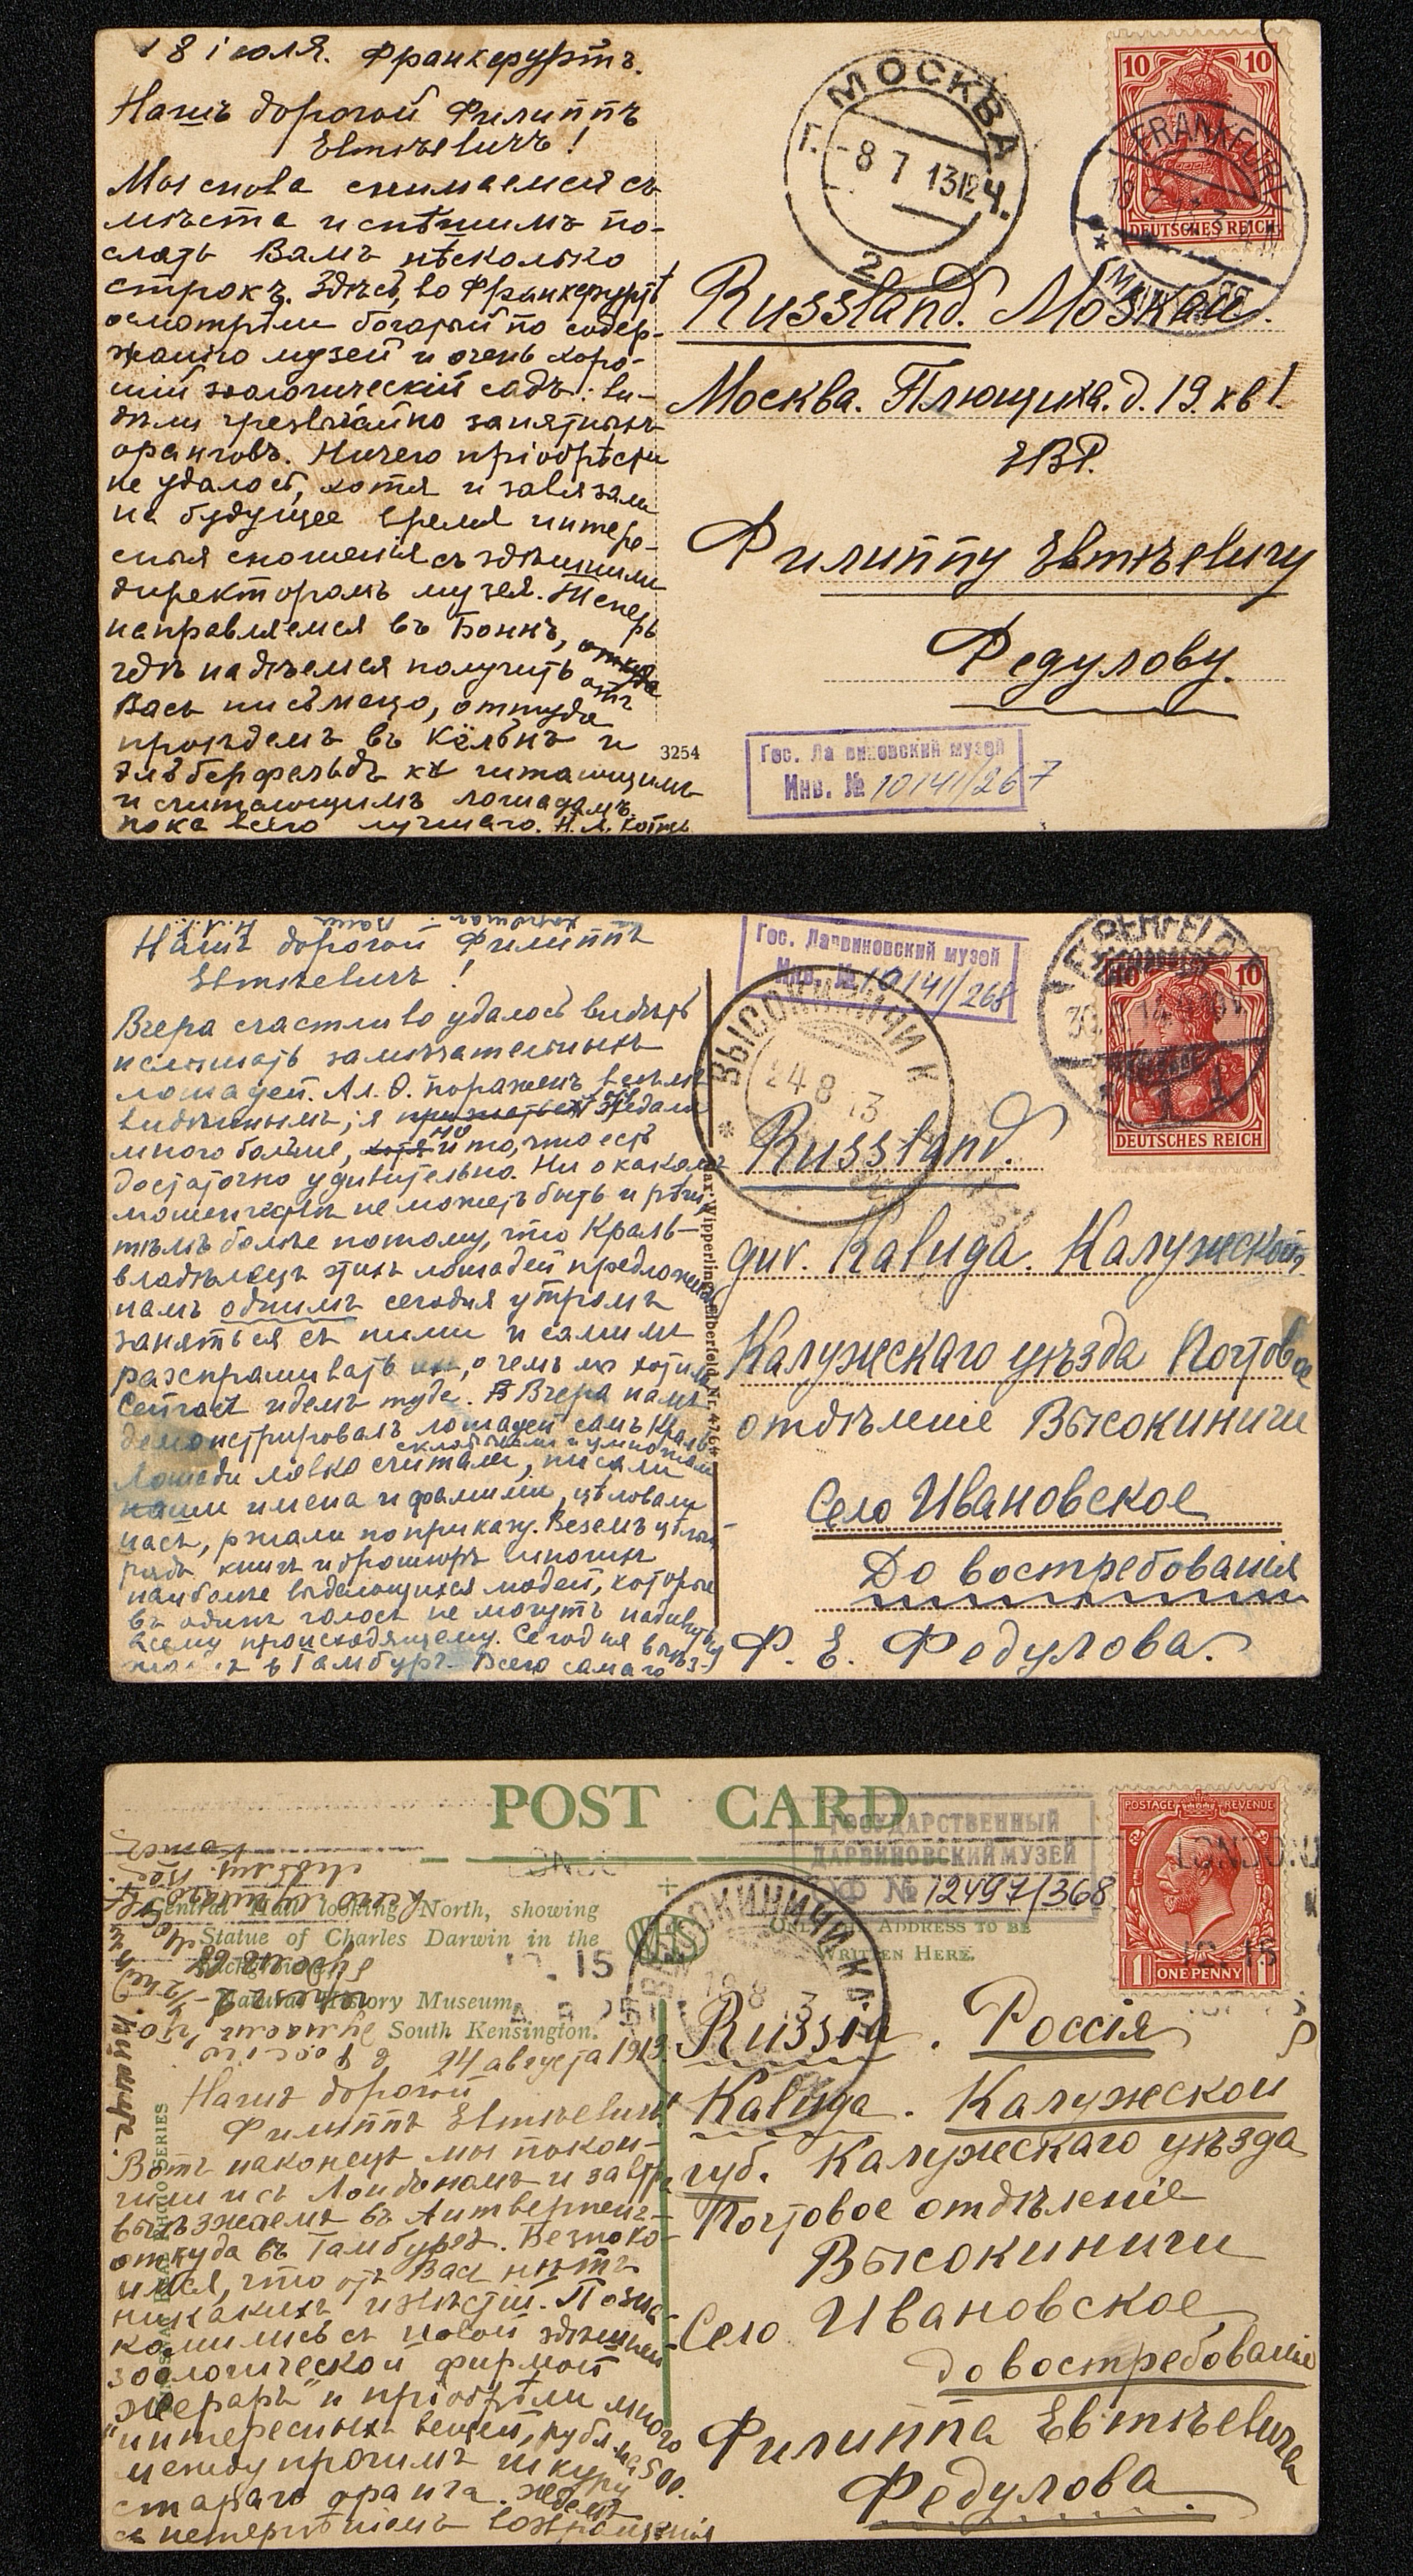 18 іюля. Франкфуртъ.
Нашъ дорогой Филиппъ
Евтѣевичъ!
Мы снова снимаемся съ
мѣста и спѣшимъ по-
слать Вамъ нѣсколько
строкъ. Здѣсь, во Франкфуртѣ
осмотрѣли богатый по содер-
жанію музей и очень хоро-
шій зоологическій садъ: ви-
дѣли чрезвычайно занятныхъ
оранговъ. Ничего пріобрѣсти
не удалось, хотя и завязали
на будущее время интере-
сныя сношенія съ здѣшнимъ
директоромъ музея. Теперь
направляемся въ Боннъ,
гдѣ надѣемся получить отъ
Васъ письмецо, оттуда
проѣдемъ въ Кёльнъ и
Эльберфельдъ къ читающимъ
и считающимъ лошадямъ.
пока всего лучшаго. Н. Л. Котсъ
3254
МОСКВА
Г. -8 7 13 12 Ч.
2
10 10
DEUTSCHES REICH
FRANKFURT
Russland. Moskau.
Москва. Плющиха. д. 19. кв 1.
ЕВР.
Филиппу Евтѣевичу
Федулову.
Гос. Дарвиновский музей
Инв. № 10141/267
Нашъ дорогой Филиппъ
Евтѣевичъ!
Вчера счастливо удалось видѣть
и слышать замѣчательныхъ
лошадей. Ал. Ѳ. пораженъ всѣмъ
видѣннымъ; я ожидала
много больше, но и то, что есть
достаточно удивительно. Ни о какомъ
мошенничествѣ не можетъ быть и рѣчи,
тѣмъ болѣе потому, что Краль-
владѣлецъ этихъ лошадей предложилъ
намъ однимъ сегодня утромъ
заняться съ ними и самимъ
разспрашивать ихъ, о чемъ мы хотимъ.
Сейчасъ идемъ туда. Вчера намъ
демонстрировалъ лошадей самъ Краль.
складывали и умножали
Лошади ловко считали, писали
наши имена и фамиліи, цѣловали
насъ, ржали по приказу. Веземъ цѣлый
рядъ книгъ и брошюръ многихъ
наиболѣе выдающихся людей, которые
въ одинъ голосъ не могутъ надивиться
всему происходящему. Сегодня выѣз-
въ Гамбургъ. Всего самаго
хорошаго. Ваша Н. Л.
Max Wipperling, Elberfeld. Nr. 4764
Гос. Дарвиновский музей
Инв. № 10141/268
ВЫСОКИНИЧИ К
24 8 13
ELBERFELD
10 10
DEUTSCHES REICH
Russland.
guv. Kaluga. Калужской
Калужскаго уѣзда Почтовое
отдѣленіе Высокиничи
Село Ивановское
До востребованія
Ф. Е. Федулова.
POST CARD
ГОСУДАРСТВЕННЫЙ
ДАРВИНОВСКИЙ МУЗЕЙ
№ 12497/368
POSTAGE REVENUE
1 ONE PENNY 1
LONDON
12.15
Central Hall looking North, showing
Statue of Charles Darwin in the
background.
Natural History Museum,
South Kensington.
WHS
ONLY THE ADDRESS TO BE
WRITTEN HERE.
ВЫСОКИНИЧИ КА
19 8 13
24 августа 1913.
Нашъ дорогой
Филиппъ Евтѣевичъ!
Вотъ наконецъ мы покон-
чили и съ Лондономъ и завтра
выѣзжаемъ въ Антверпенъ-
откуда въ Гамбургъ. Безпоко-
имся, что отъ Васъ нѣтъ
никакихъ извѣстій. Позна-
комились съ новой здѣшней
зоологической фирмой
"Жерраръ" и пріобрѣли много
интересныхъ вещей, рубл. на 500.
между прочимъ шкуру
стараго оранга. Ждемъ
съ нетерпѣніемъ возвращенія
SERIES
Russia. Россія
Kaluga. Калужской
губ. Калужскаго уѣзда
Почтовое отдѣленіе
Высокиничи
Село Ивановское
до востребованія
Филиппа Евтѣевича
Федулова.